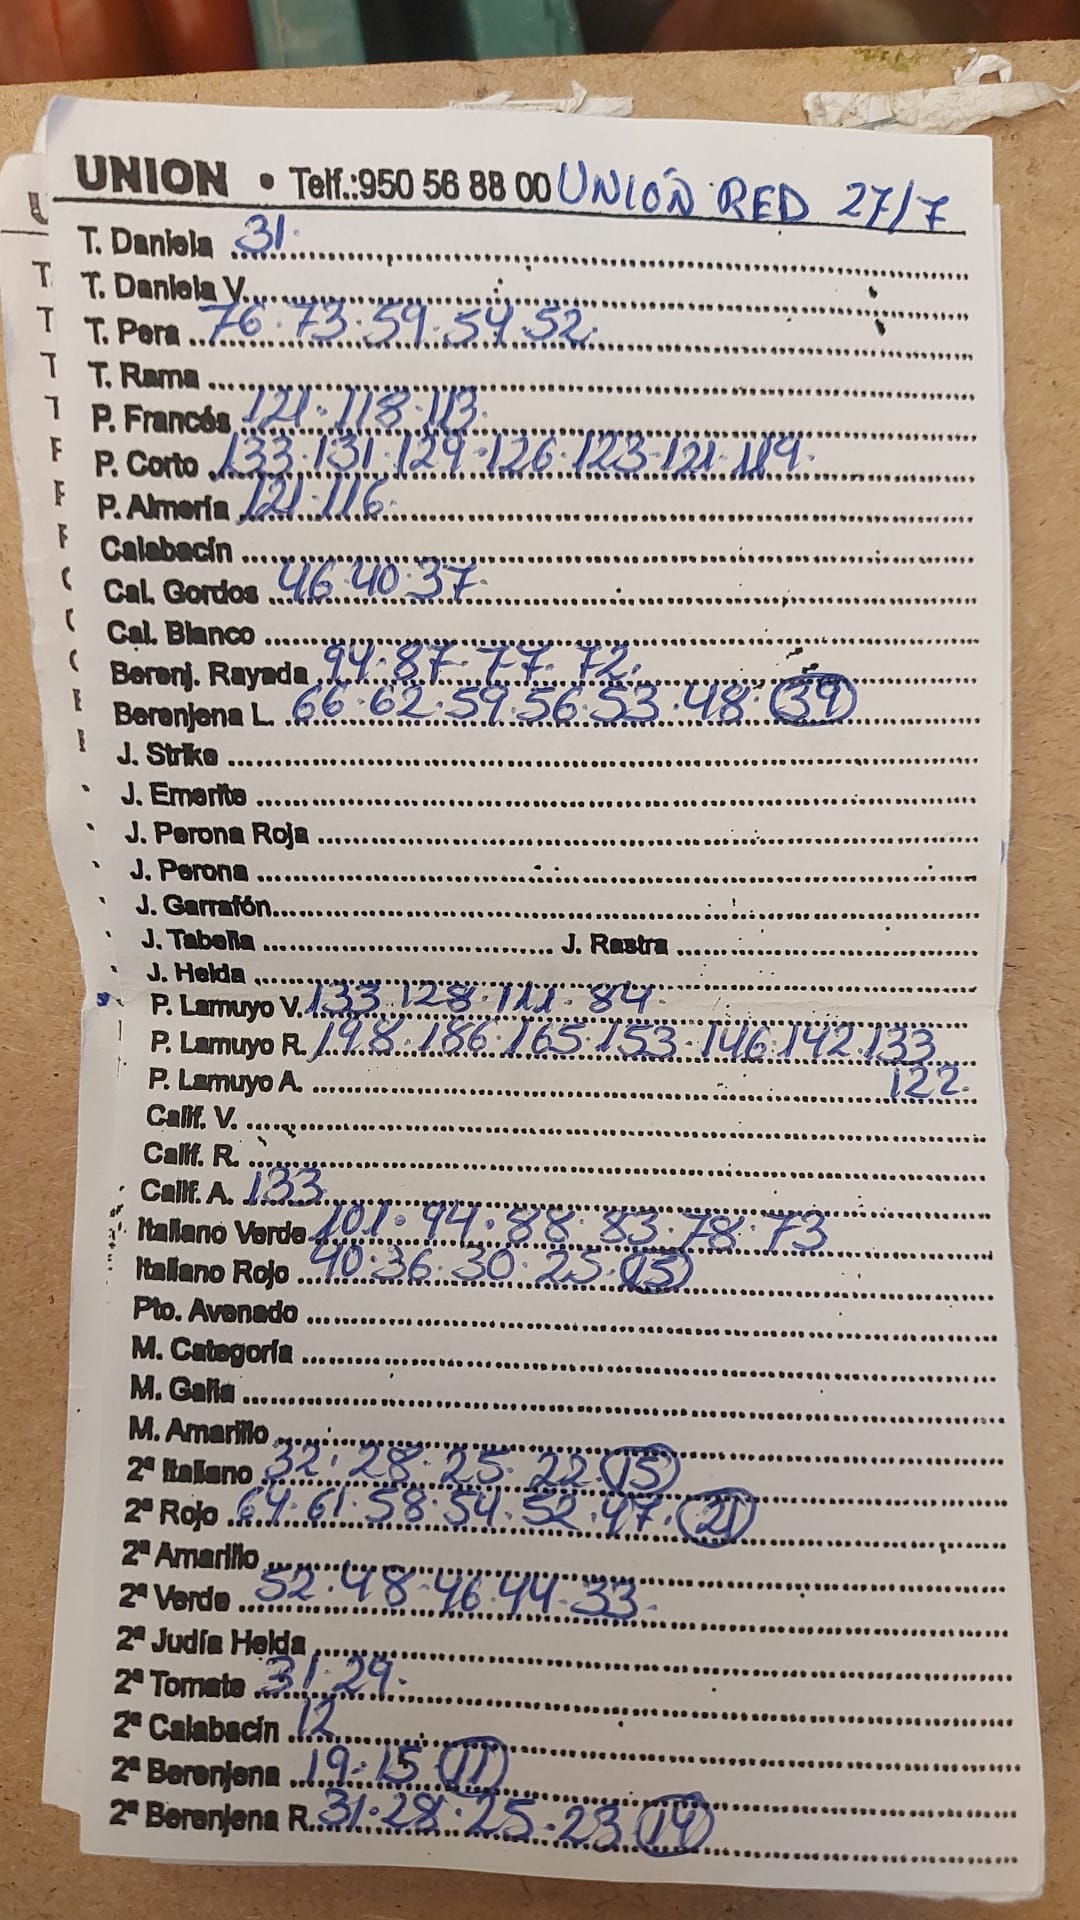 UNION • Telf.:950 56 88 00 UNIÓN RED 27/7
T. Daniela 31.
T. Daniela V.
T. Pera 76.73.59.54.52.
T. Rama
P. Francés 121.118.113.
P. Corto 133.131.129.126.123.121.119.
P. Almería 121.116.
Calabacín
Cal. Gordos 46.40.37.
Cal. Blanco
Berenj. Rayada 94.87.77.72.
Berenjena L. 66.62.59.56.53.48.39
J. Strike
J. Emerite
J. Perona Roja
J. Perona
J. Garrafón
J. Tabella J. Rastra
J. Helda
P. Lamuyo V. 133.128.111.84.
P. Lamuyo R. 198.186.165.153.146.142.133
P. Lamuyo A. 122.
Calif. V.
Calif. R.
Calif. A. 133
Italiano Verde 101.94.88.83.78.73
Italiano Rojo 40.36.30.25.15
Pto. Avenado
M. Categoría
M. Galia
M. Amarillo
2ª Italiano 32.28.25.22.15
2ª Rojo 64.61.58.54.52.47.21
2ª Amarillo
2ª Verde 52.48.46.44.33.
2ª Judía Helda
2ª Tomate 31.29.
2ª Calabacín 12
2ª Berenjena 19.15 11
2ª Berenjena R. 31.28.25.23 14